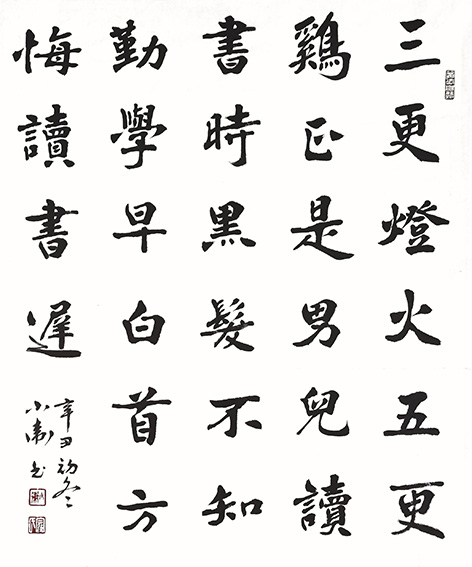 三更燈火五更
鷄正是男兒讀
書時黑髮不知
勤學早白首方
悔讀書遲
辛丑初冬
小衛书